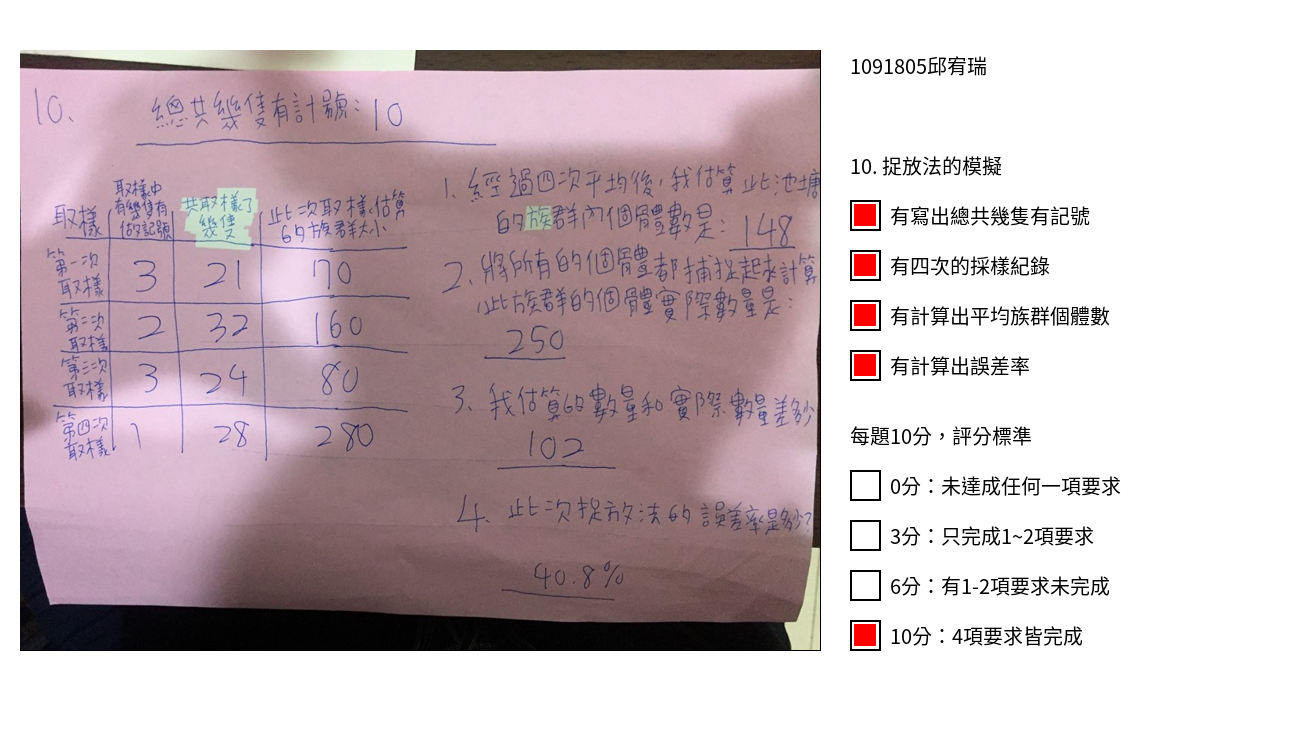 10.
總共幾隻有計號：10
取樣
取樣中
有幾隻有
做記號
共取樣了
幾隻
此次取樣估算
的族群大小
第一次
取樣
3
21
70
第二次
取樣
2
32
160
第三次
取樣
3
24
80
第四次
取樣
1
28
280
1. 經過四次平均後，我估算此池塘
的族群內個體數是：148
2. 將所有的個體都捕捉起來計算
此族群的個體實際數量是：
250
3. 我估算的數量和實際數量差多少
102
4. 此次捉放法的誤差率是多少?
40.8%
1091805邱宥瑞
10. 捉放法的模擬
有寫出總共幾隻有記號
有四次的採樣紀錄
有計算出平均族群個體數
有計算出誤差率
每題10分，評分標準
0分：未達成任何一項要求
3分：只完成1~2項要求
6分：有1-2項要求未完成
10分：4項要求皆完成